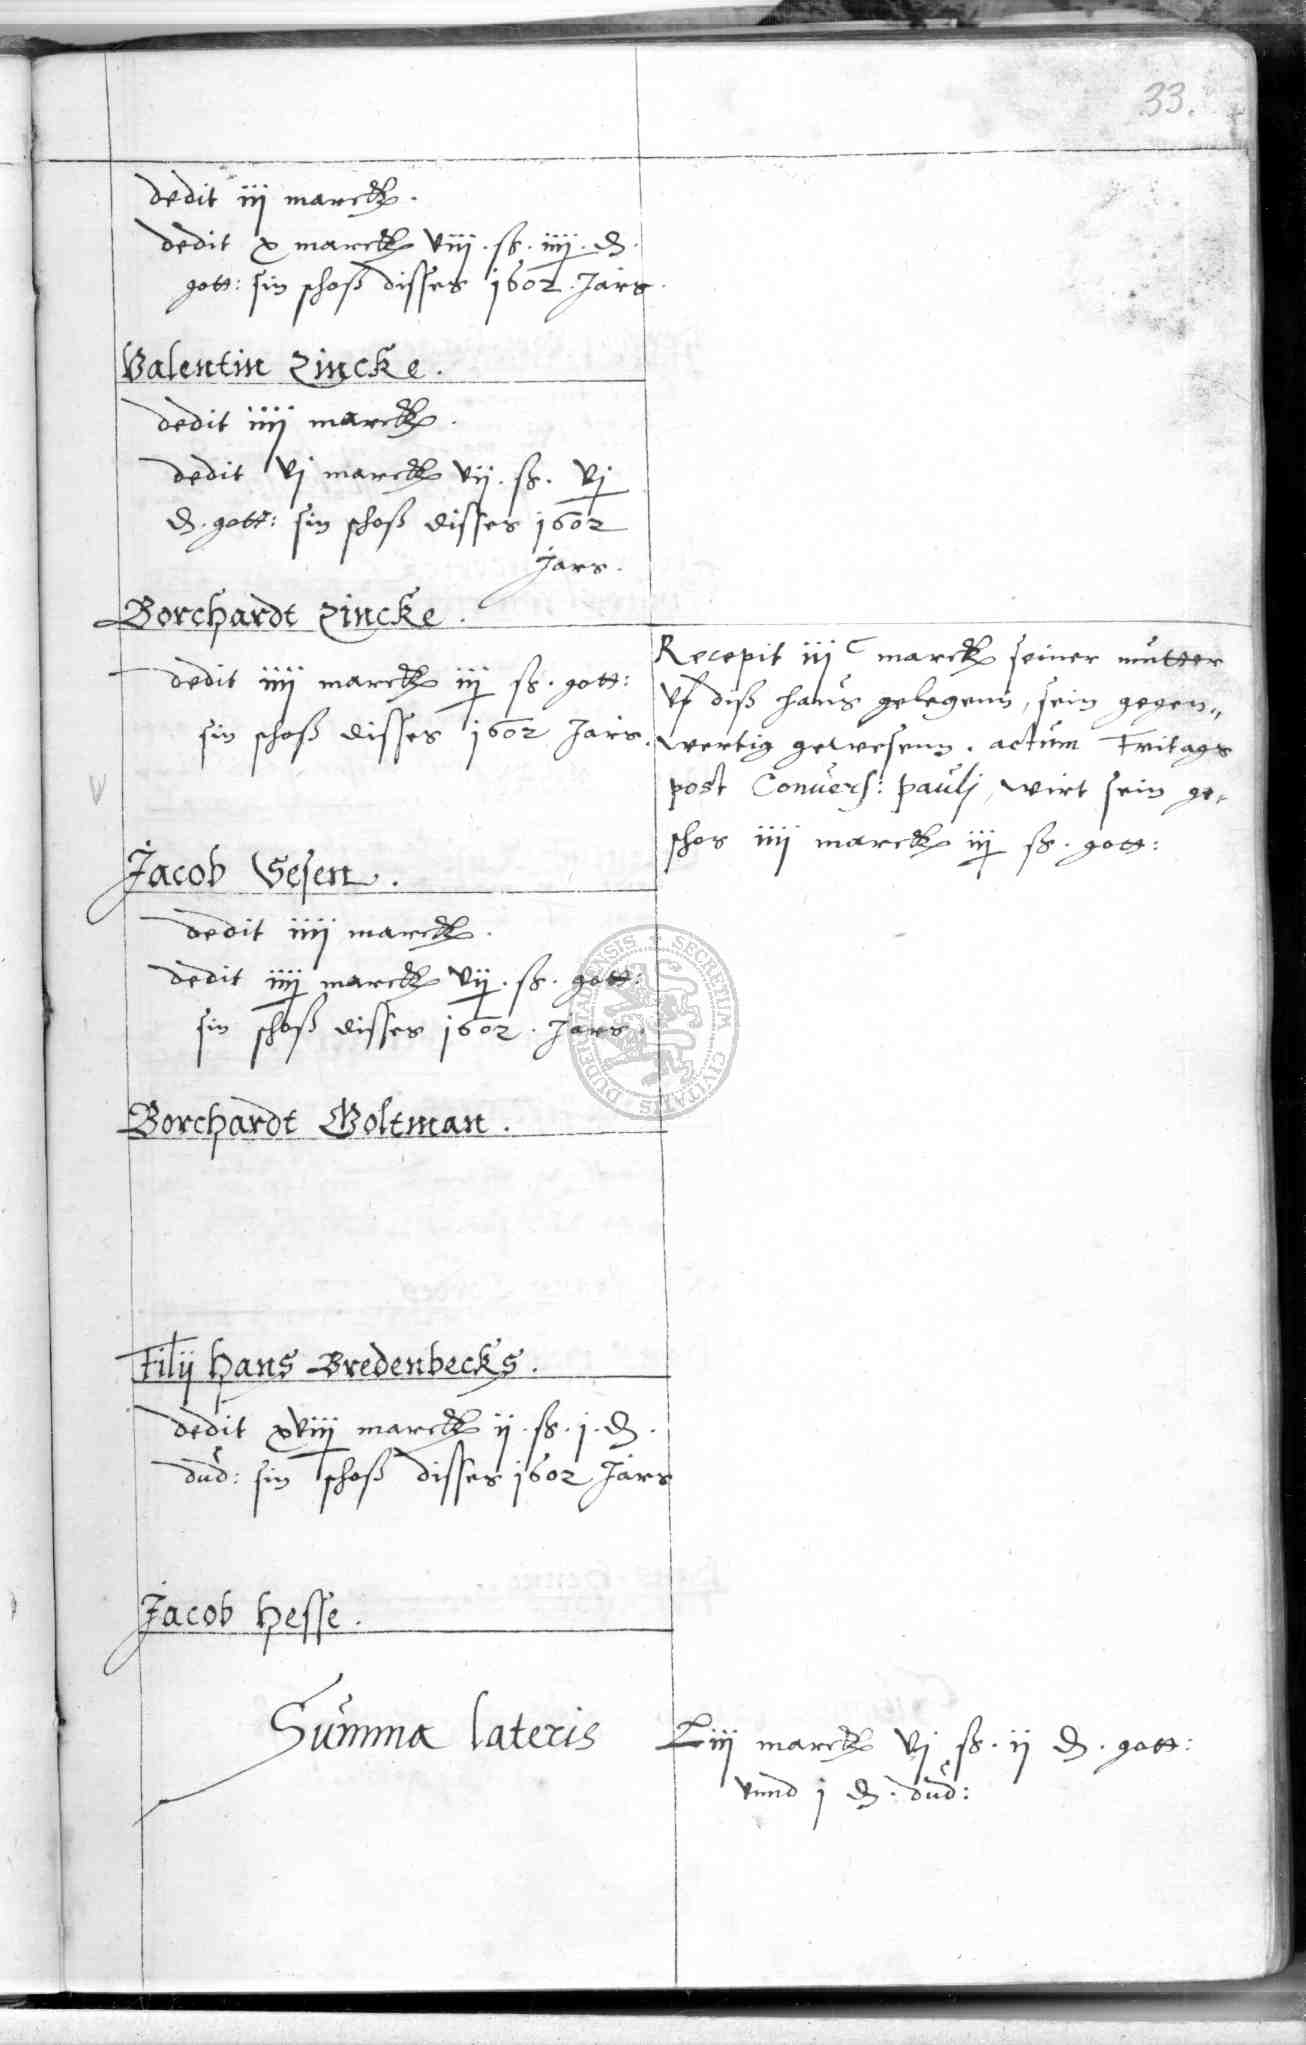 33.
dedit iij marck.
dedit x marck viij. ß. iiij. d.
gott: sin schoß disses 1602. Jars.
Valentin Zincke.
dedit iiij marck.
dedit vj marck vij. ß. vj
d. gott: sin schoß disses 1602
Jars.
Borchardt Zincke.
dedit iiij marck iij ß. gott:
sin schoß disses 1602 Jars.
Recepit iij c marck seiner mutter
vf diß haus gelegenn, sein gegen„
wertig gewesenn. actum Fritags
post Convers: paulj, wirt sein ge„
schos iiij marck iij ß. gott:
Jacob Gesen.
dedit iiij marck.
dedit iiij marck vij. ß. gott:
sin schoß disses 1602. Jars.
SECRETUM CIVITATIS DUDERSTADENSIS
Borchardt Woltman.
Filij Hans Bredenbecks.
dedit xviij marck ij. ß. j. d.
dud: sin schoß disses 1602 Jars
Jacob Hesse.
Summa lateris
Liij marck vj ß. ij d. gott:
vnnd j d. dud: